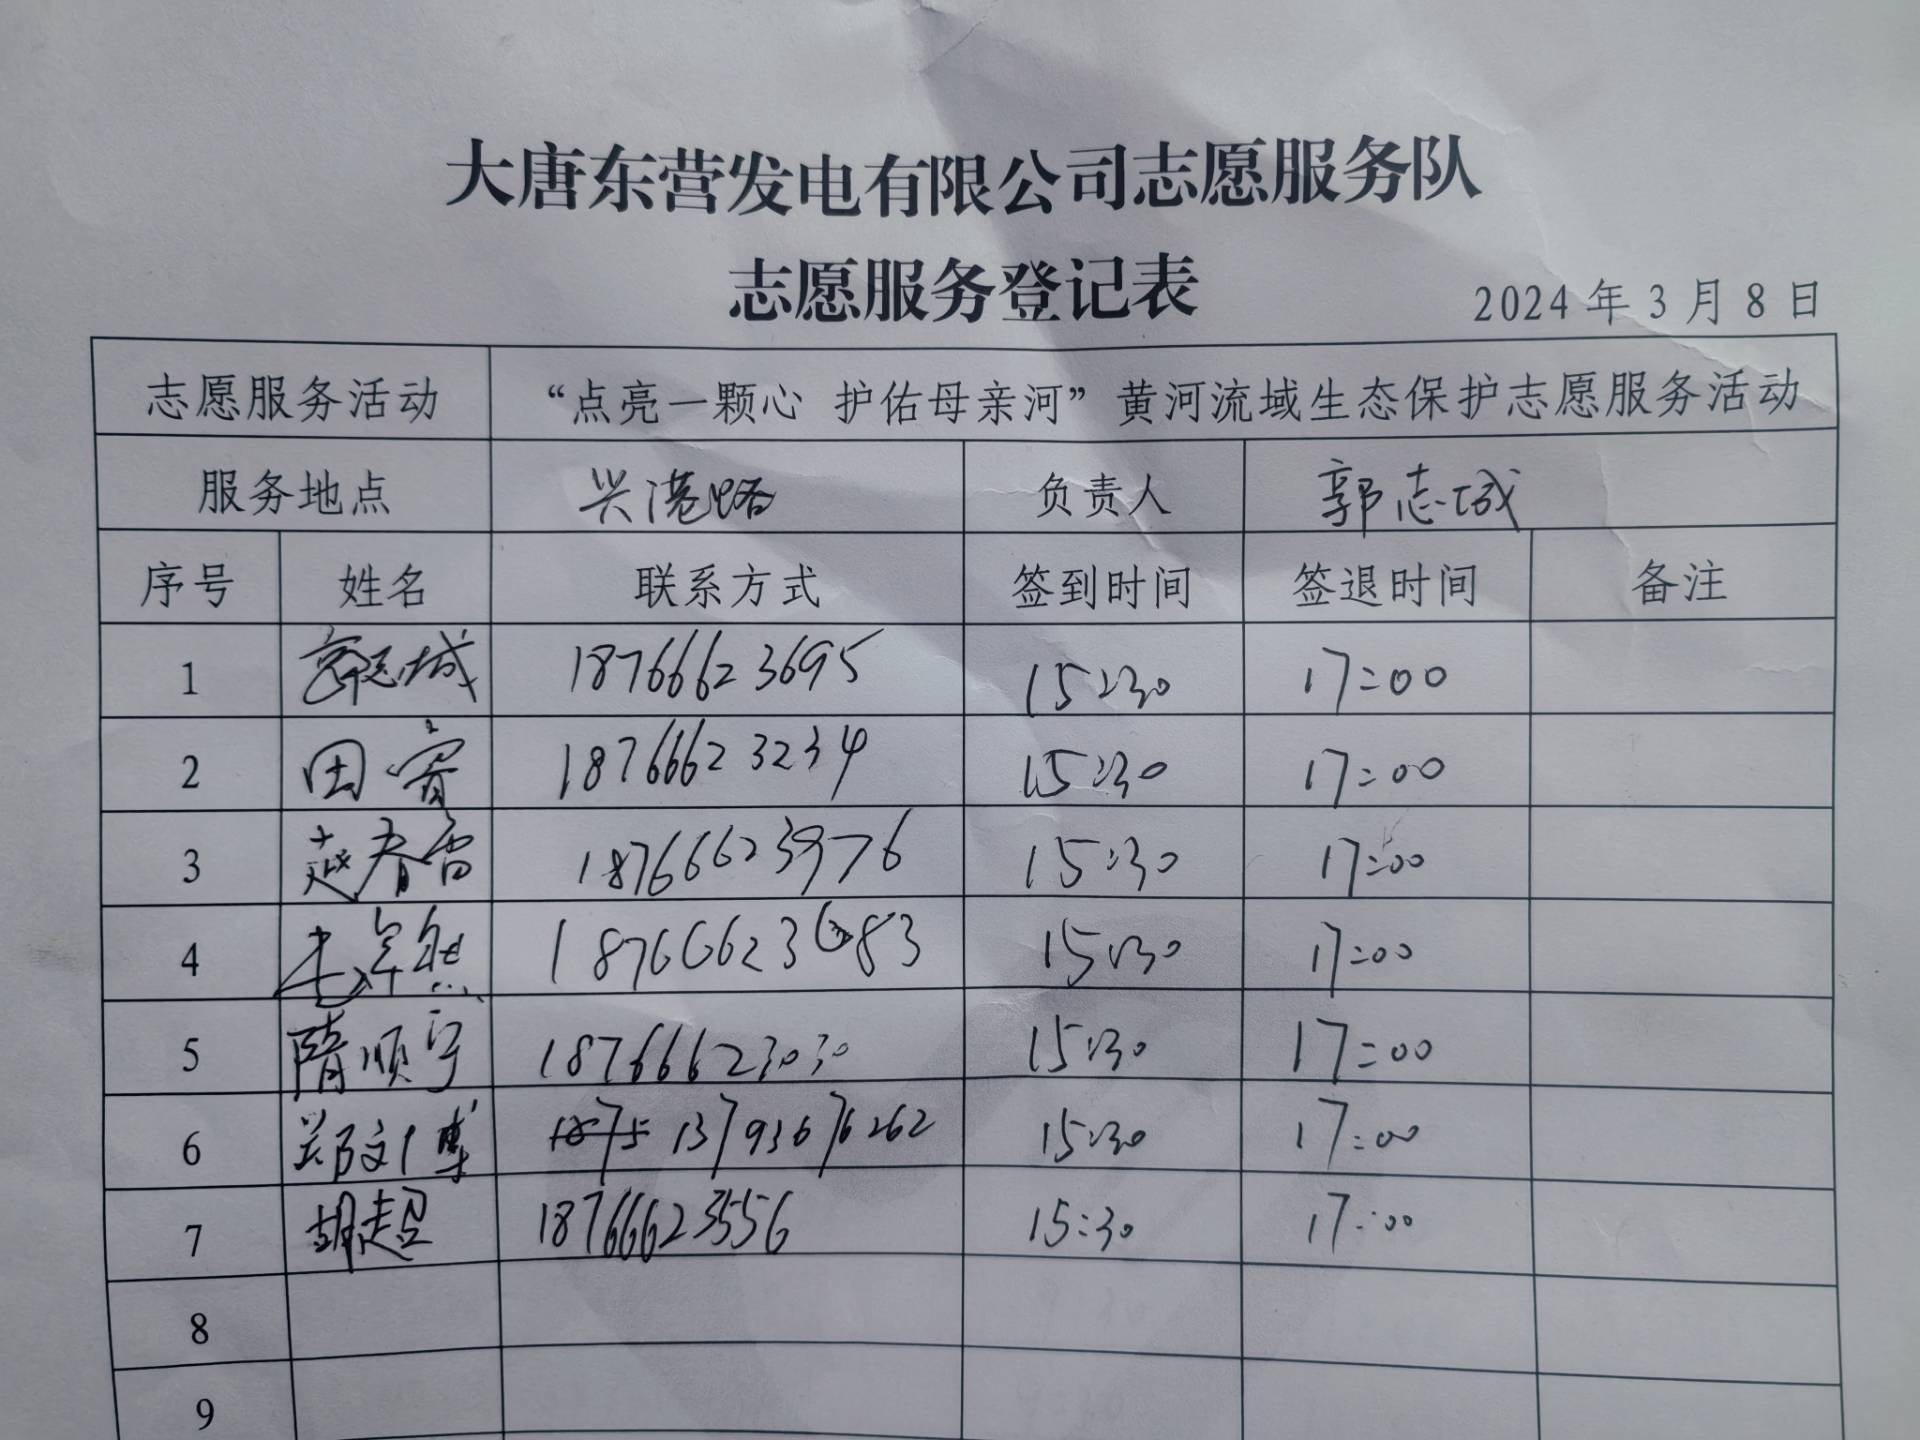 大唐东营发电有限公司志愿服务队
志愿服务登记表
2024年3月8日
志愿服务活动 “点亮一颗心 护佑母亲河”黄河流域生态保护志愿服务活动
服务地点 兴港路 负责人 郭志城
序号 姓名 联系方式 签到时间 签退时间 备注
1 郭志城 18766623695 15:30 17:00
2 田睿 18766623234 15:30 17:00
3 赵春雷 18766623976 15:30 17:00
4 18766623683 15:30 17:00
5 隋顺宇 18766623030 15:30 17:00
6 郑文博 13793676262 15:30 17:00
7 胡超 18766623556 15:30 17:00
8
9